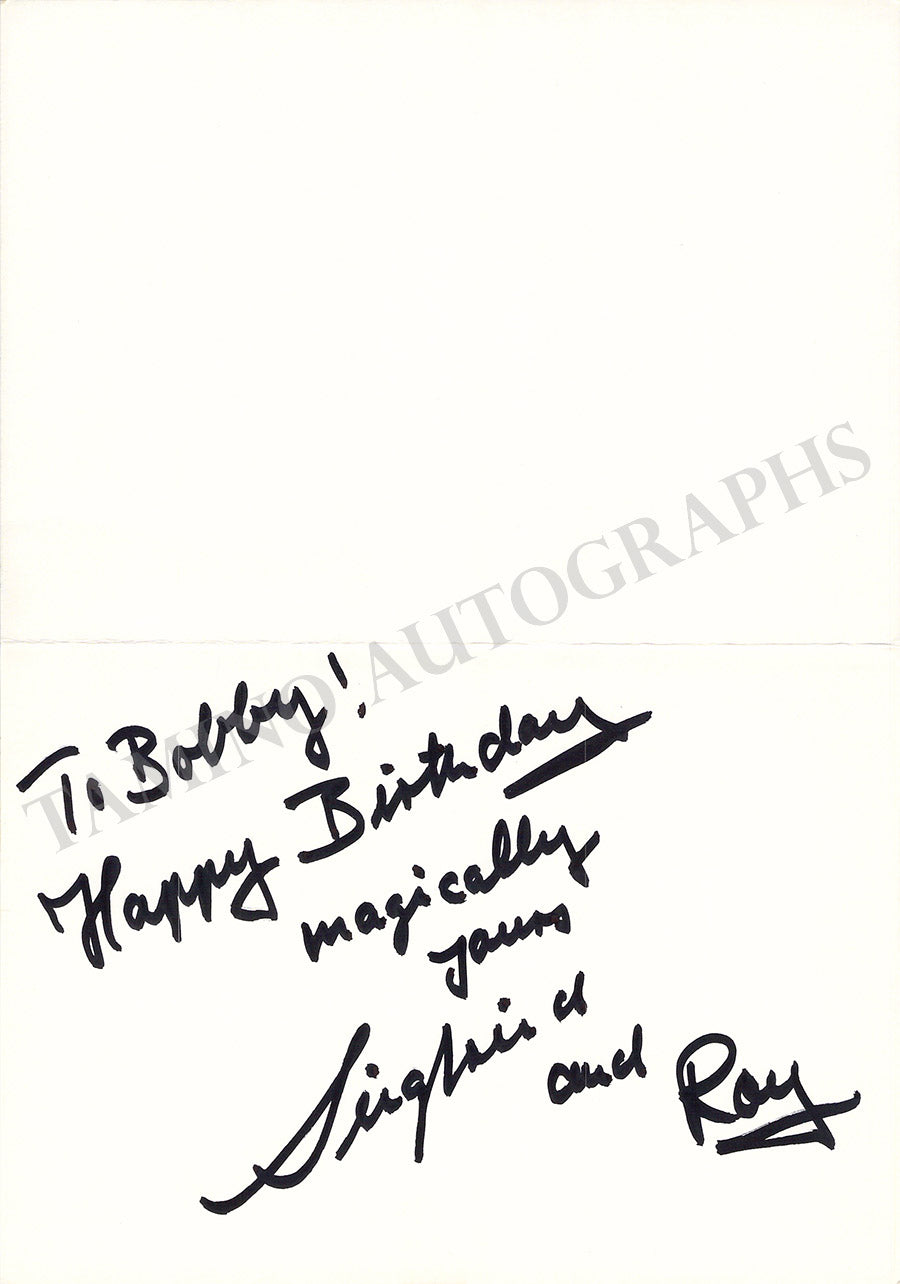 TAMINO AUTOGRAPHS
To Bobby!
Happy Birthday
magically
yours
Siegfried
and Roy